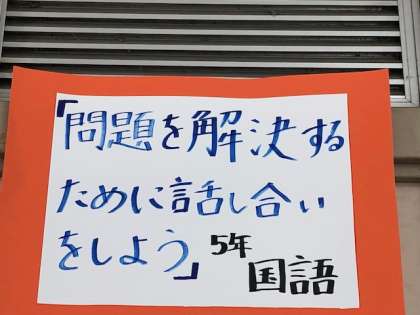 「問題を解決する
ために話し合い
をしよう」5年
国語